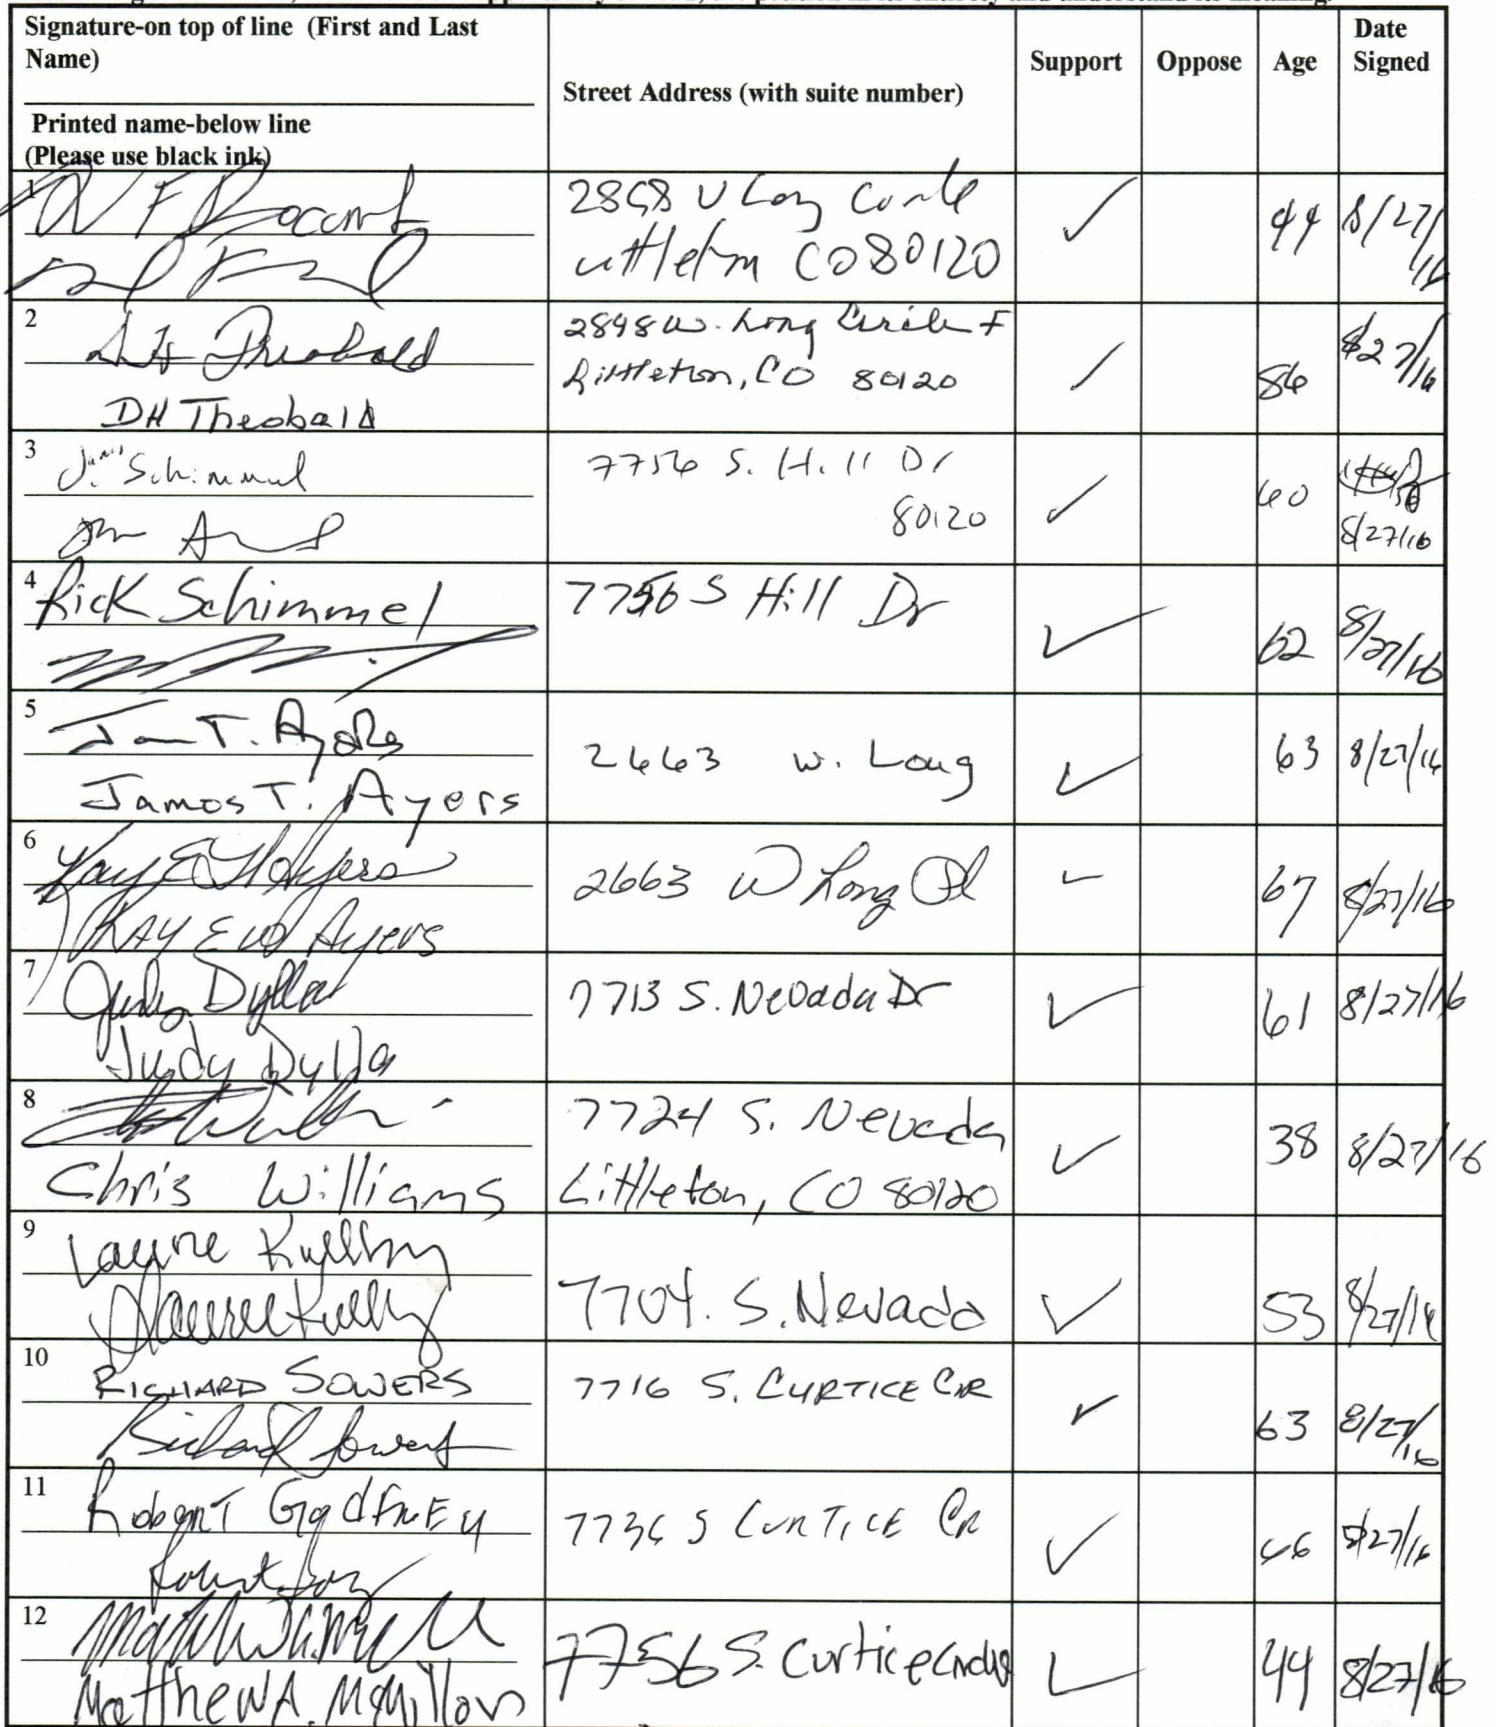 Signature-on top of line (First and Last
Name)
Printed name-below line
(Please use black ink)
Street Address (with suite number)
Support
Oppose
Age
Date
Signed
1
CO 80120
44
8/27/16
2
DH Theobald
2898 W. Long Circle F
Littleton, CO 80120
86
8/27/16
3
Schimmel
7756 S. Hill Dr
80120
60
8/27/16
4
Rick Schimmel
7756 S Hill Dr
62
8/27/16
5
T. Ayers
James T. Ayers
2663 W. Long
63
8/27/16
6
Kay Ayers
KAY Ayers
2663 W Long Pl
67
8/27/16
7
Judy Dylla
Judy Dylla
7713 S. Nevada Dr
61
8/27/16
8
Chris Williams
7724 S. Nevada
Littleton, CO 80120
38
8/27/16
9
Laurie
7704. S. Nevada
53
8/27/16
10
RICHARD SOWERS
Richard Sowers
7716 S. CURTICE CIR
63
8/27/16
11
Robert Godfrey
7736 S CURTICE CR
8/27/16
12
Matthew A. McMillan
7756 S. Curtice Circle
44
8/27/16